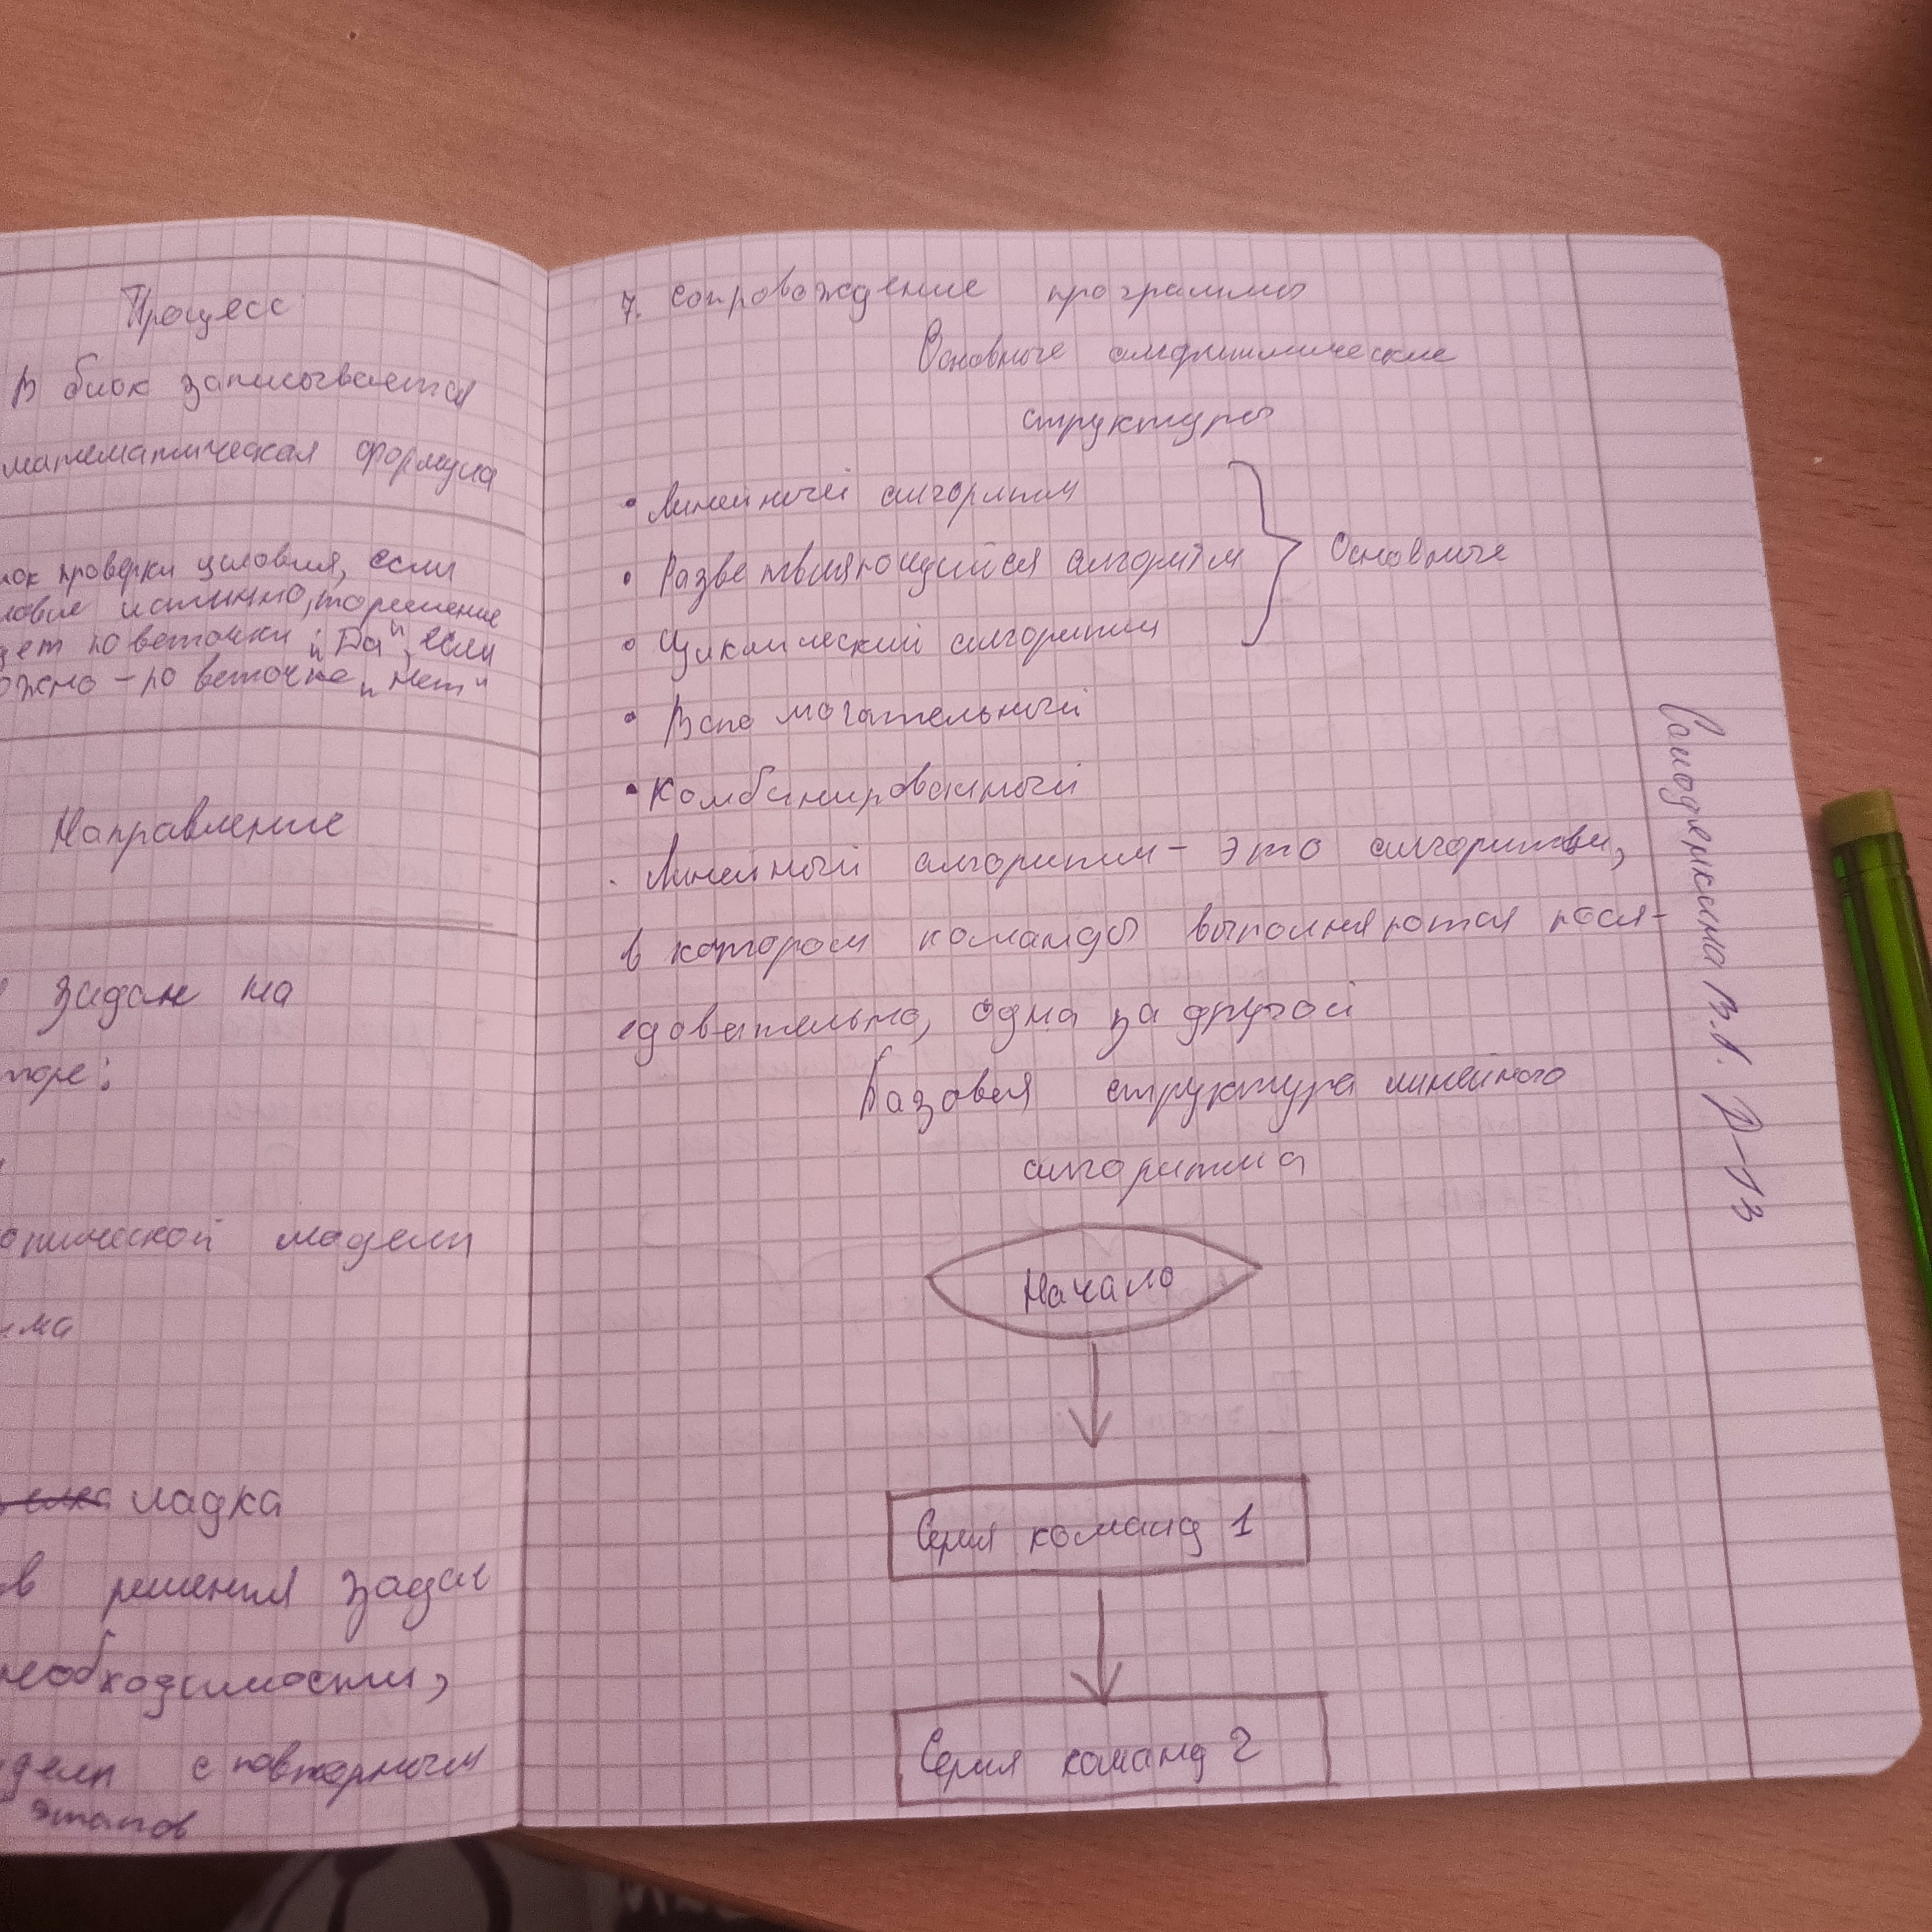 Процесс
В блок записывается
математическая формула
блок проверки условия, если
условие истинно, то решение
идет по веточки "Да", если
ложно - по веточке "нет"
Направление
задан на
торе:
гической модели
ладка
в решения задач
необходимости,
дели с повторным
этапов
7. Сопровождение программы
Основные алгоритмические
структуры
• Линейный алгоритм
• Разветвляющийся алгоритм
• Циклический алгоритм
Основные
• Вспомогательный
• Комбинированный
Линейный алгоритм - это алгоритм,
в котором команды выполняются посл-
едовательно, одна за другой
Базовая структура линейного
алгоритма
Начало
Серия команд 1
Серия команд 2